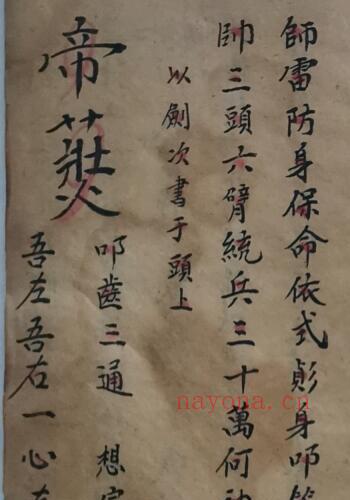 師雷防身保命依式影身叩
帥三頭六臂統兵三十萬何
以劍次書于頭上
帝
叩齒三通 想
吾左吾右一心
nayona.cn